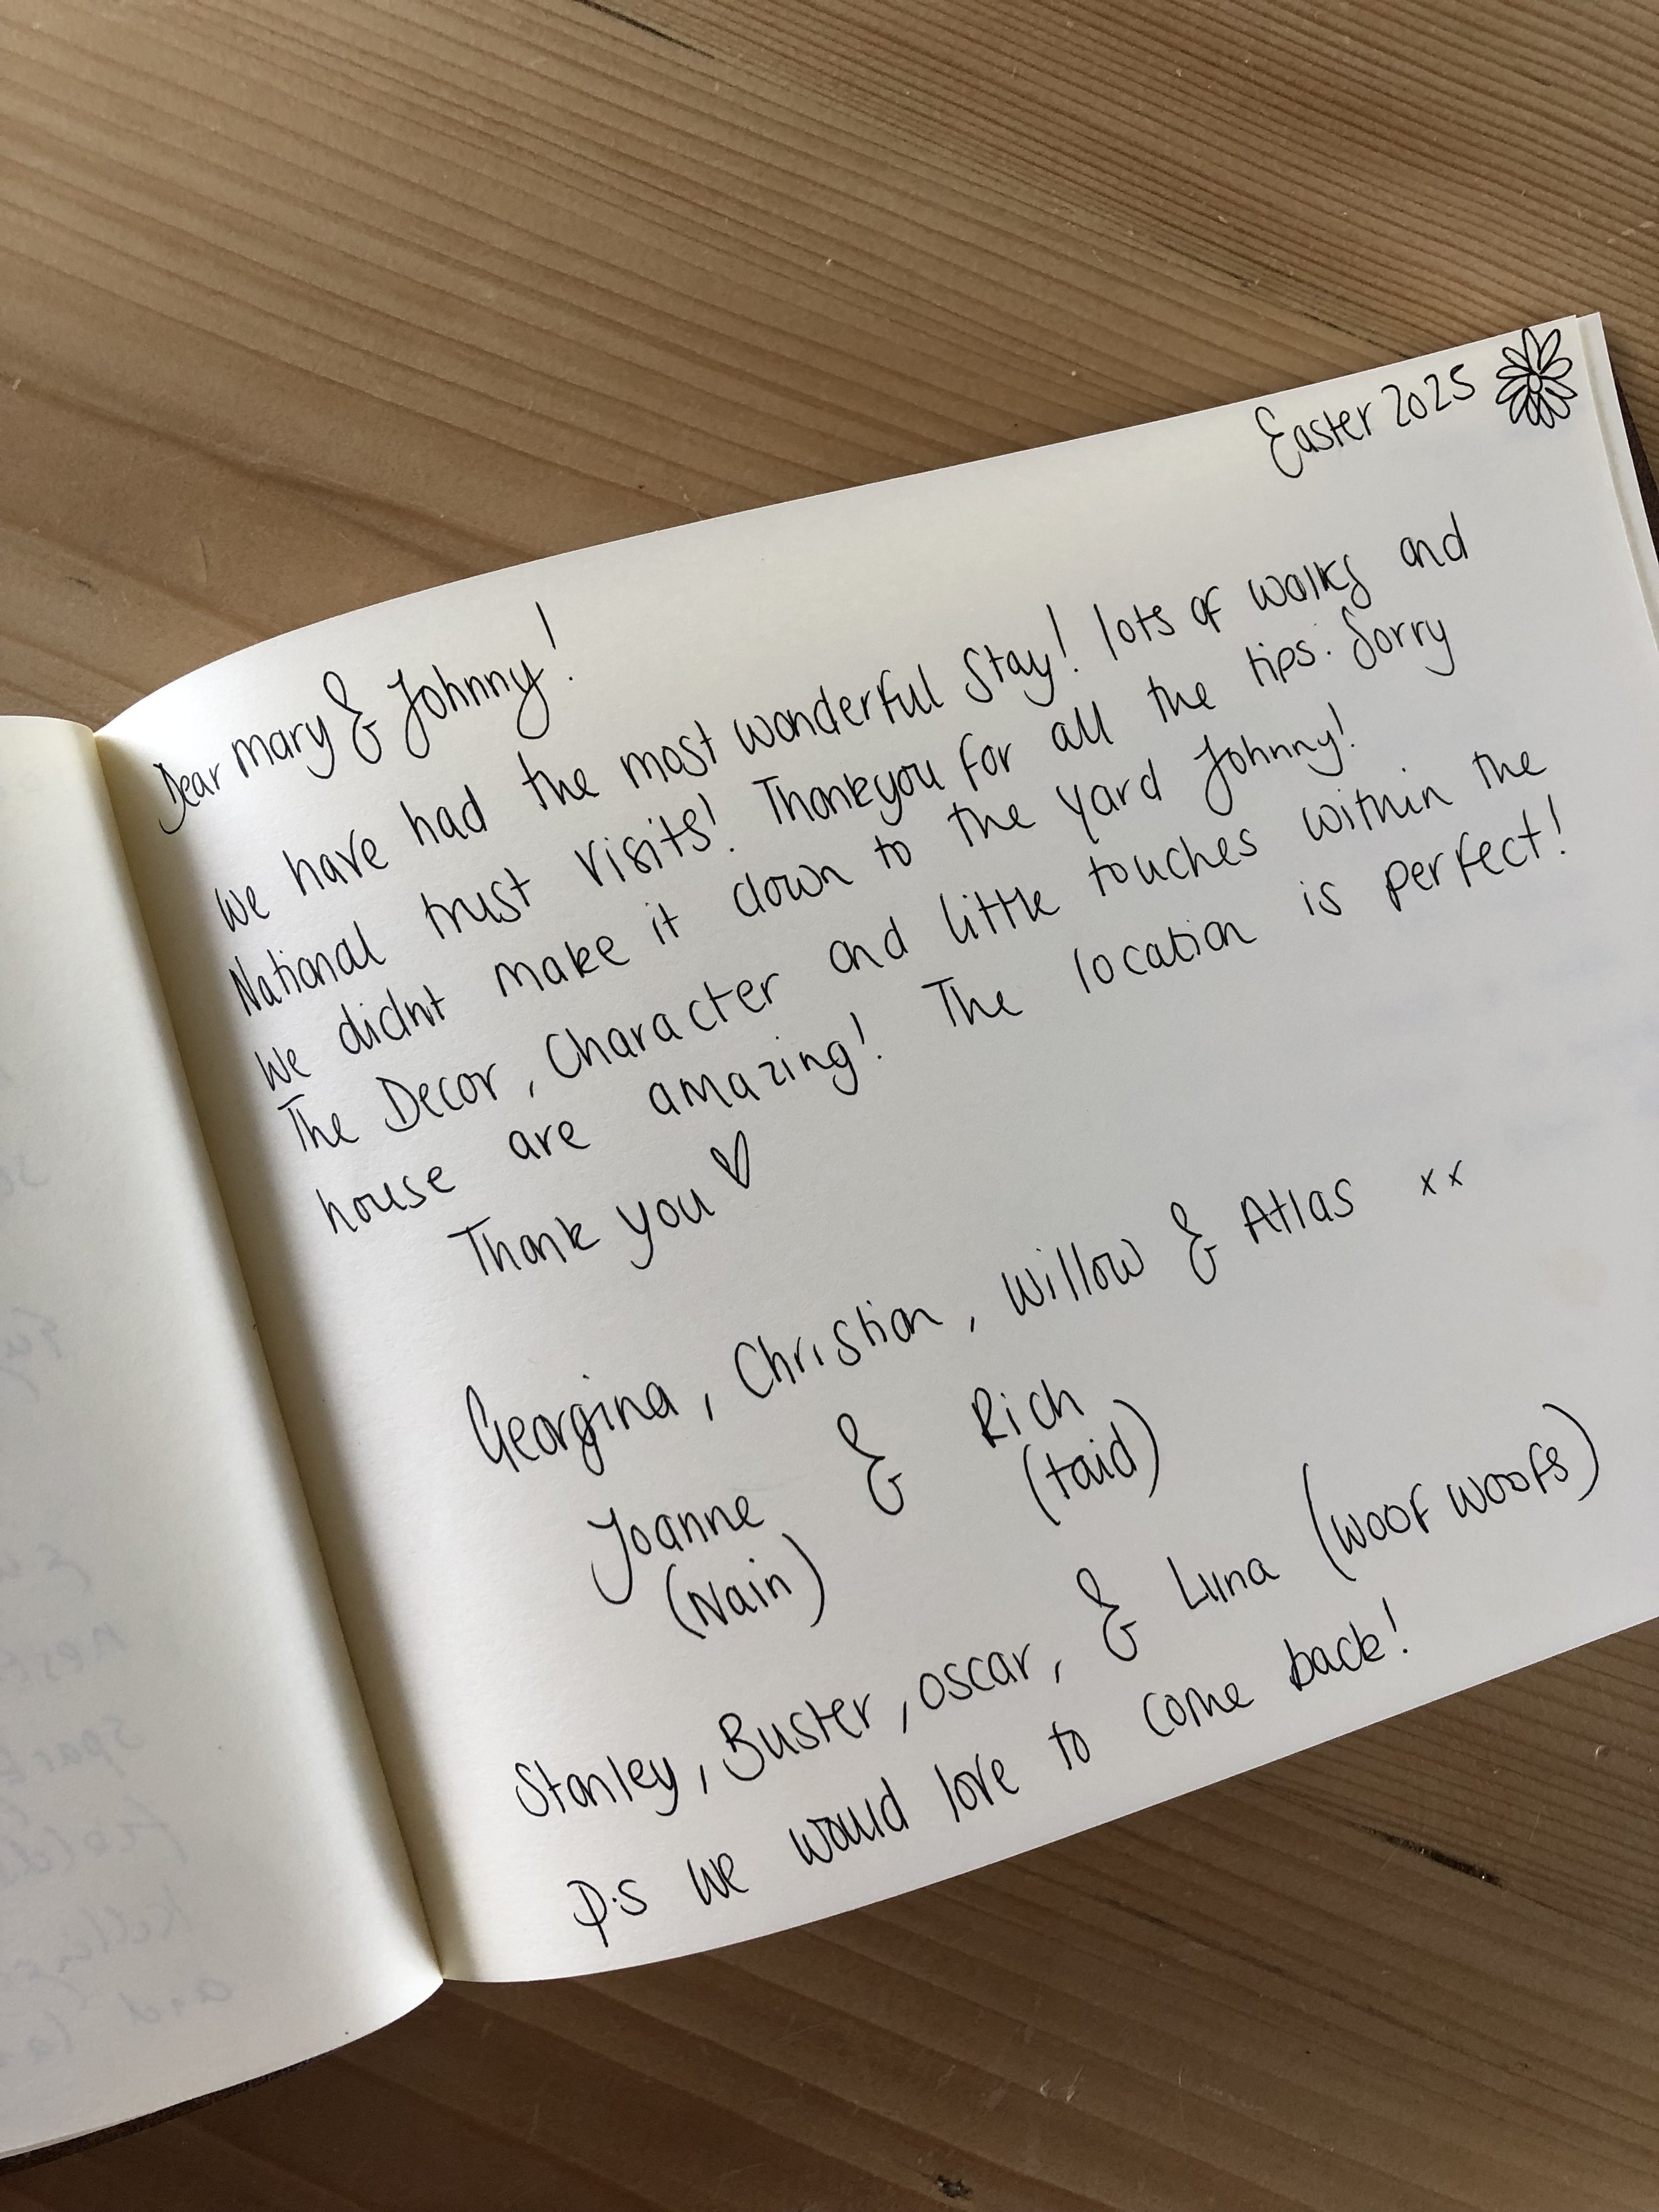 Easter 2025
Dear Mary & Johnny!
We have had the most wonderful Stay! lots of walks and
National trust visits! Thankyou for all the tips. Sorry
we didnt make it down to the yard Johnny!
The Decor, Character and little touches within the
house are amazing! The location is perfect!
Thank you ♡
Georgina, Christian, Willow & Atlas xx
Joanne & Rich
(Nain) (taid)
Stanley, Buster, oscar, & Luna (woof woofs)
P.s we would love to come back!